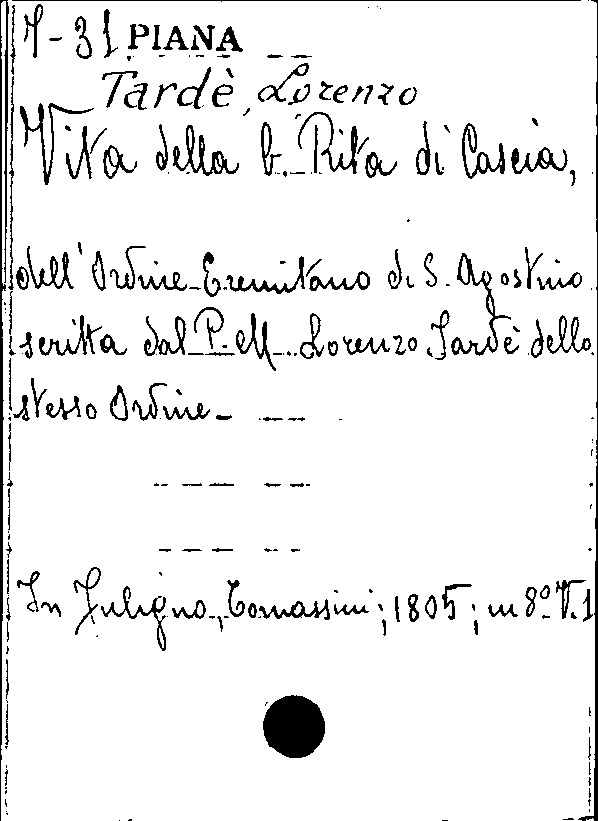 7-31 PIANA
Tardè, Lorenzo
Vita della b. Rita di Cascia,
dell'Ordine Eremitano di S. Agostino
scritta dal P. M. Lorenzo Tardè dello
stesso Ordine -
In Fuligno, Tomassini; 1805; in 8º V. 1